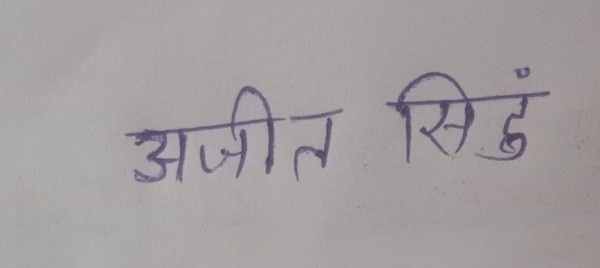 अजीत सिहं